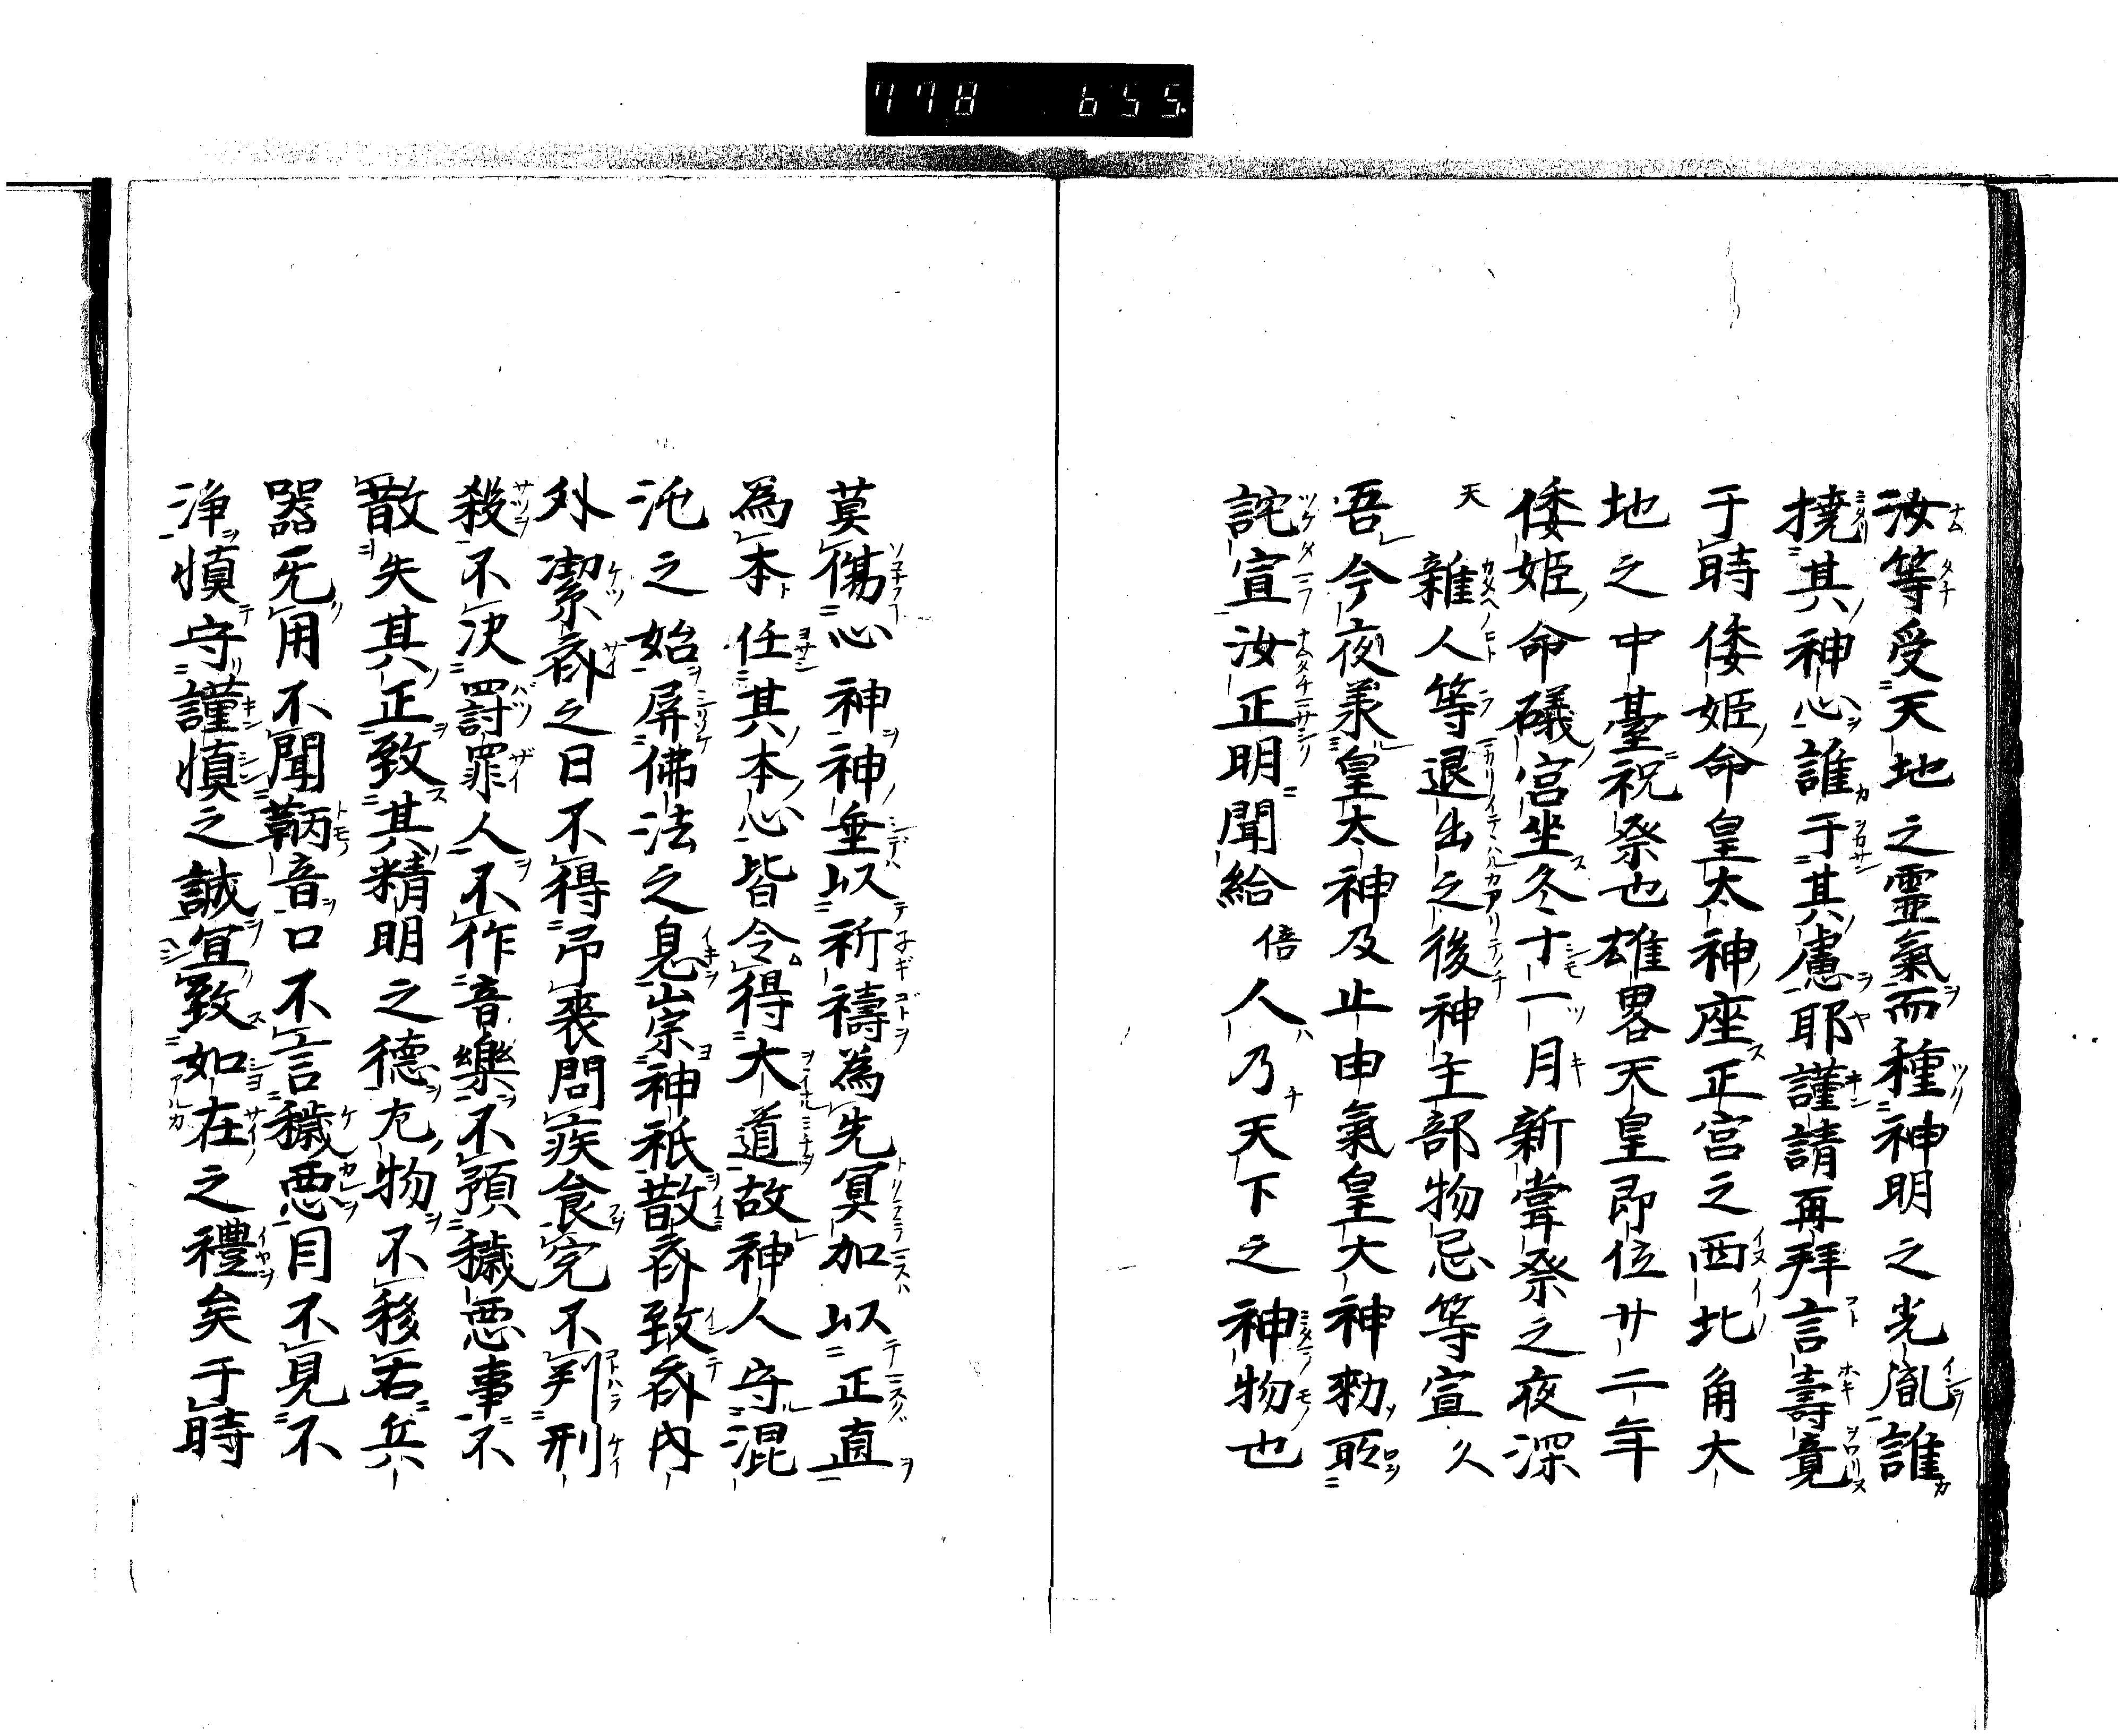 778 655
汝等受天地之霊氣而種神明之光胤誰
撓其神心誰于其慮耶謹請再拜言壽竟
于時倭姫命皇太神座正宮之西北角大
地之中臺祝祭也雄畧天皇即位廿二年
倭姫命礒宮坐冬十一月新甞祭之夜深
天
雜人等退出之後神主部物忌等宣久
吾今夜羕皇太神及止申氣皇大神勑所
詫宣汝正明聞給倍人乃天下之神物也
莫傷心神神垂以祈禱為先冥加以正直
為本任其本心皆令得大道故神人守混
沌之始屏佛法之息崇神祇散斎致斎内
外潔斎之日不得吊喪問疾食宍不判刑
殺不決罰罪人不作音樂不預穢悪事不
散失其正致其精明之德左物不移右兵
器无用不聞鞆音口不言穢悪目不見不
浄慎守謹慎之誠宜致如在之禮矣于時